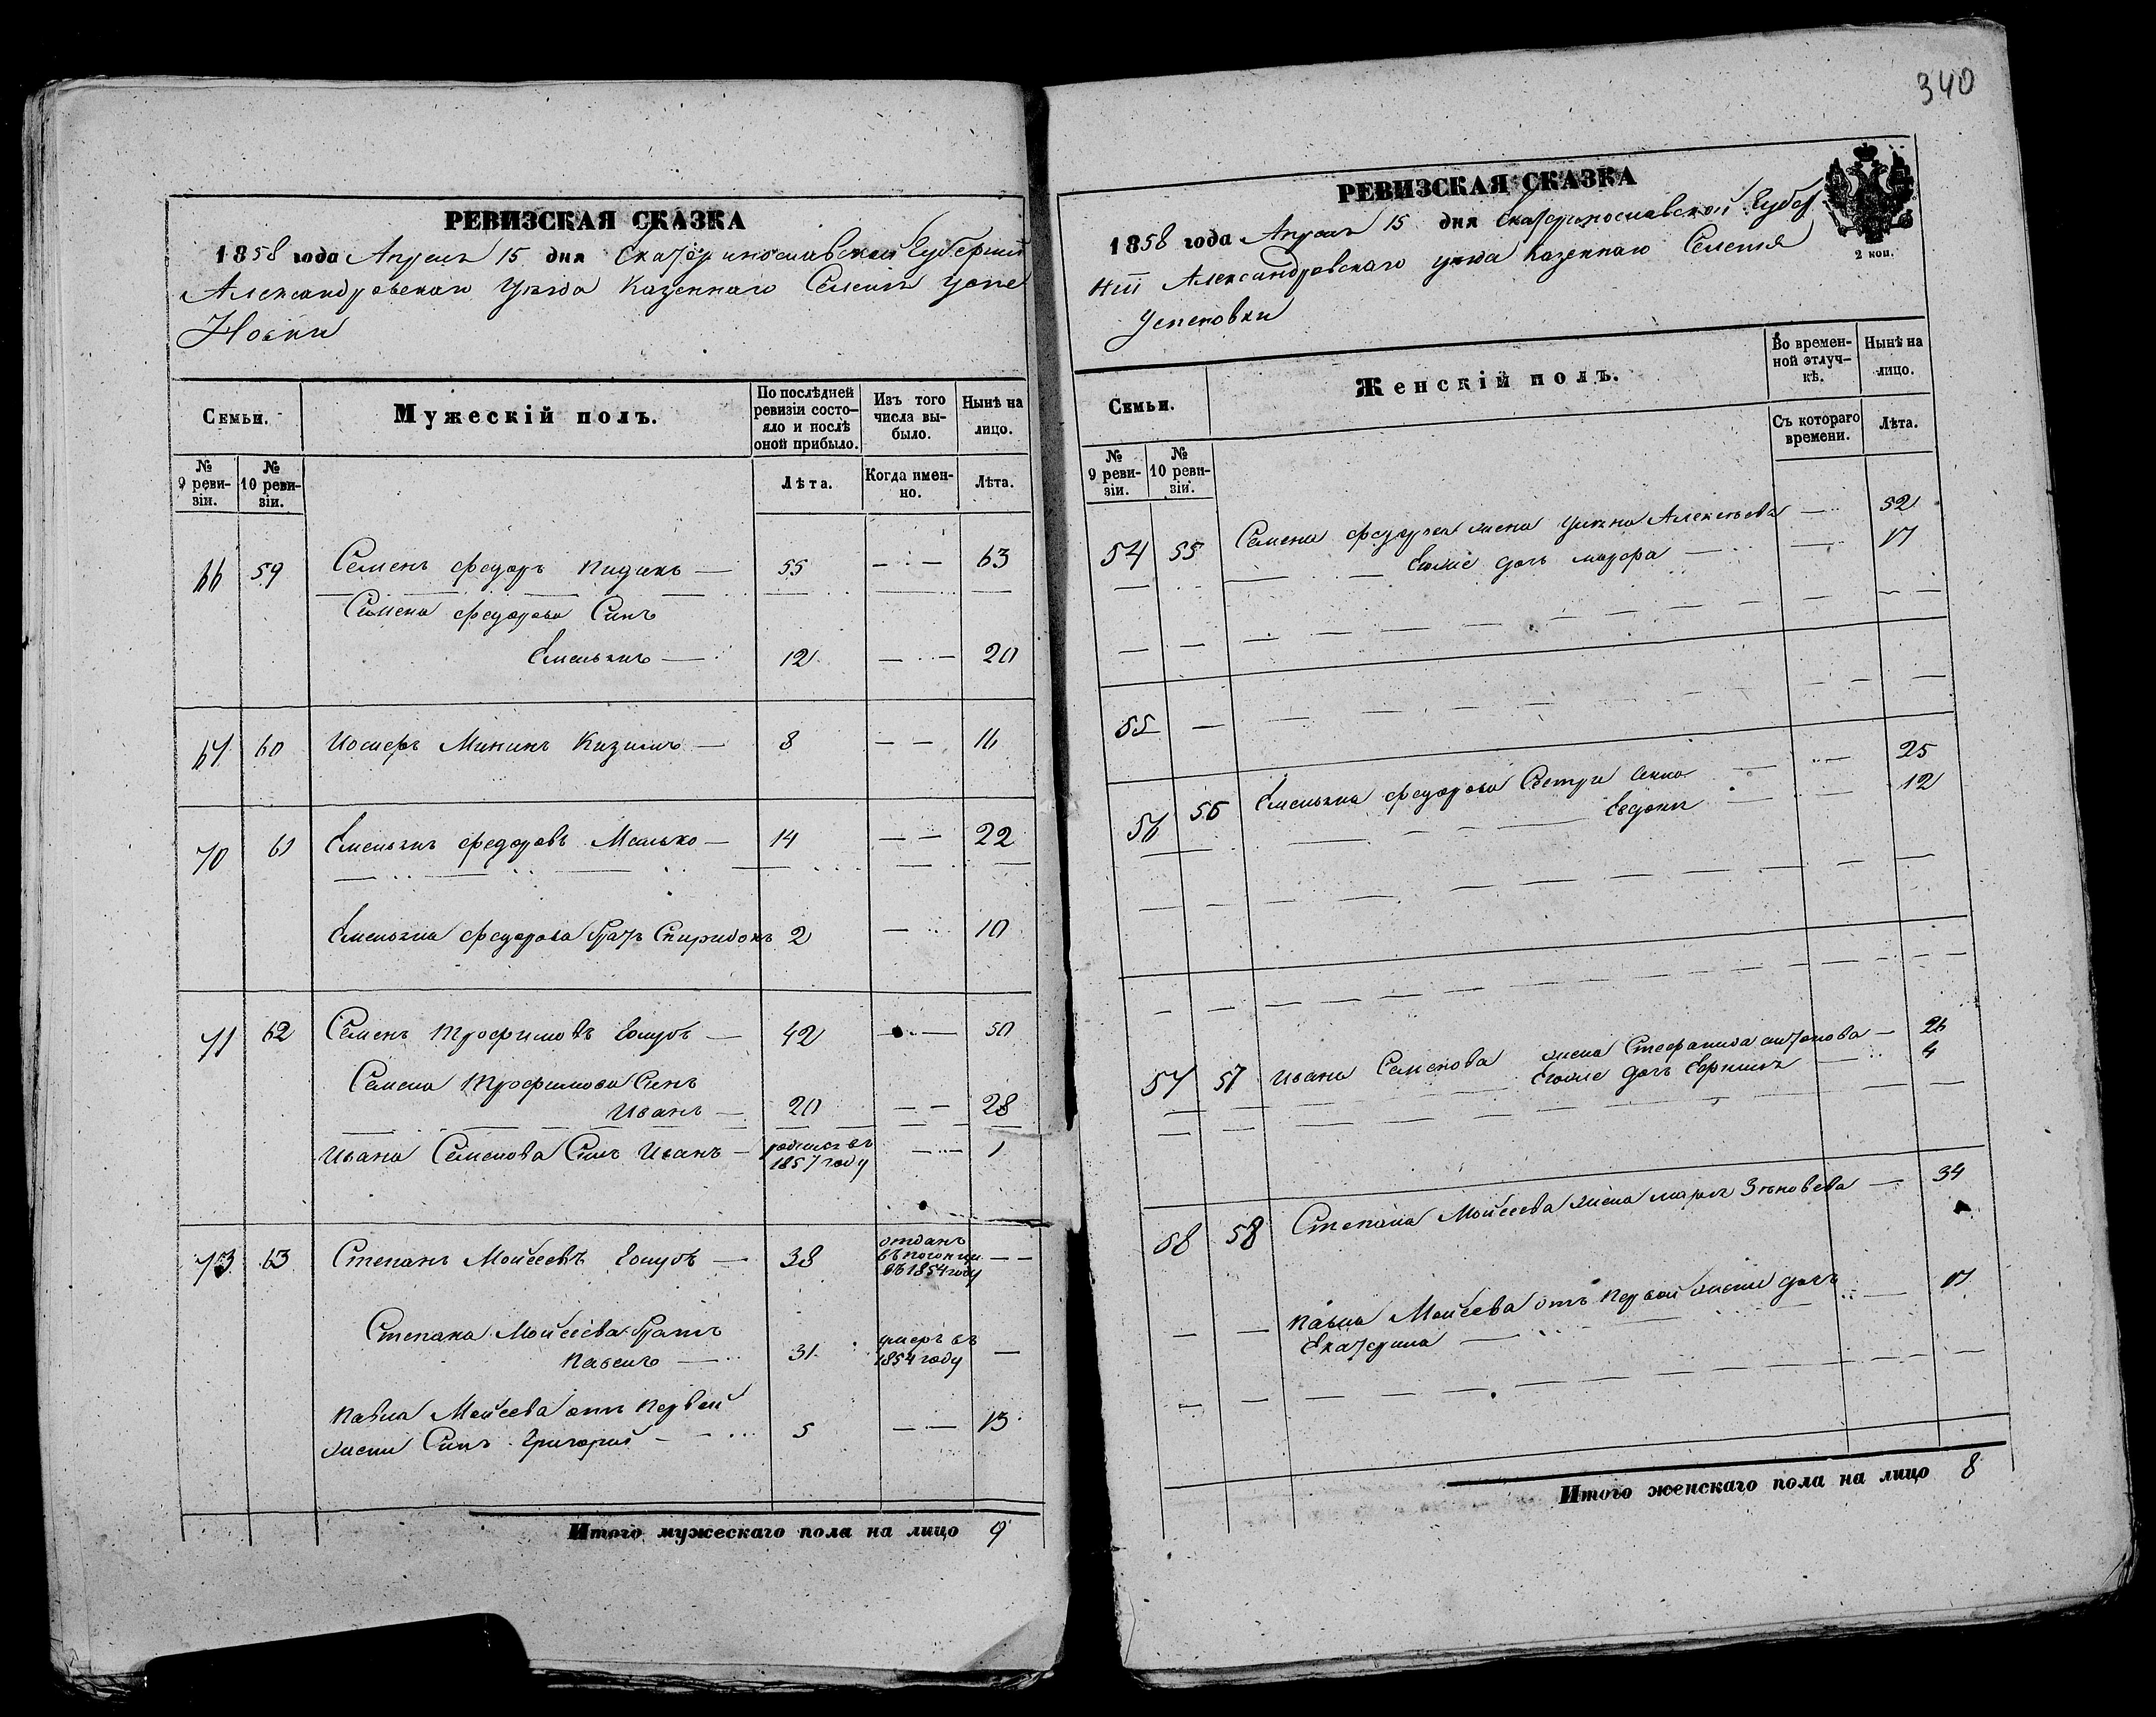 РЕВИЗСКАЯ СКАЗКА
1858 года Апреля 15 дня Екатеринославской Губернии
Александровскаго Уезда Казеннаго Селенія Успе
Новки
Семьи.
Мужескій полъ.
По послѣдней ревизіи состо-
яло и послѣ
оной прибыло.
Изъ того
числа вы-
было.
Нынѣ на
лицо.
№
9 реви-
зіи.
№
10 реви-
зіи.
Лѣта.
Когда имен-
но.
Лѣта.
66 59 Семенъ Федоръ 55 63
Семена Федорова Синъ
Емельянъ 12 20
67 60 8 16
70 61 Емельянъ Федоровъ 14 22
Емельяна Федорова Братъ Спиридонъ 2 10
71 62 Семенъ Трофимовъ Голубъ 42 50
Семена Трофимова Синъ
Иванъ 20 28
Ивана Семенова Синъ Иванъ родился въ
1857 году 1
73 63 Степанъ Моисеевъ Голубъ 38 отданъ
въ погонци
въ 1854 году
Степана Моисеева Братъ
Павелъ 31 умеръ въ
1854 году
Павла Моисеева отъ Первой
жени Синъ Григорий 5 13
Итого мужескаго пола на лицо 9
340
РЕВИЗСКАЯ СКАЗКА
1858 года Апреля 15 дня Екатеринославской Губер
ніи Александровскаго уезда Казеннаго Селенія
Успеновки
2 коп.
Семьи.
Женскій полъ.
Во времен-
ной отлуч-
кѣ.
Нынѣ на
лицо.
№
9 реви-
зіи.
№
10 реви-
зіи.
Съ котораго
времени.
Лѣта.
54 55 Семена Федорова жена Улияна Алексеева 52
Егоже дочь Марфа 17
55
56 56 Емельяна Федорова Сестри Анна 25
Евдокия 12
57 57 Ивана Семенова жена Стефанида антонова 26
Егоже дочь 4
58 58 Степана Моисеева жена Мария Зѣновева 34
Павла Моисеева отъ Первой жени дочь 17
Екатерина
Итого женскаго пола на лицо 8